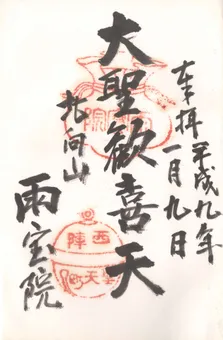 奉拝 平成九年
一月九日
大聖歓喜天
北向山
雨宝院
西陣
聖天